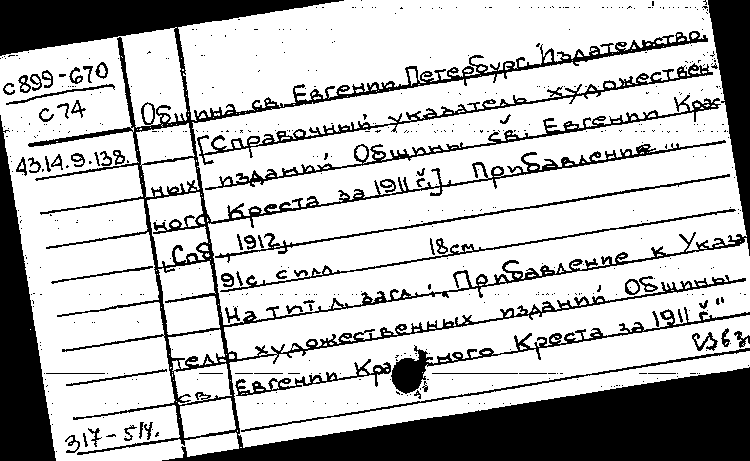 с899-670
с74
43.14.9.138.
Община св. Евгении. Петербург. Издательство.
[Справочный указатель художествен-
ных изданий Общины св. Евгении Крас-
ного Креста за 1911 г.]. Прибавление...
Спб, 1912.
91с. с илл. 18см.
На тит. л. загл.: „Прибавление к Указа-
телю художественных изданий Общины
св. Евгении Красного Креста за 1911 г."
317-514.